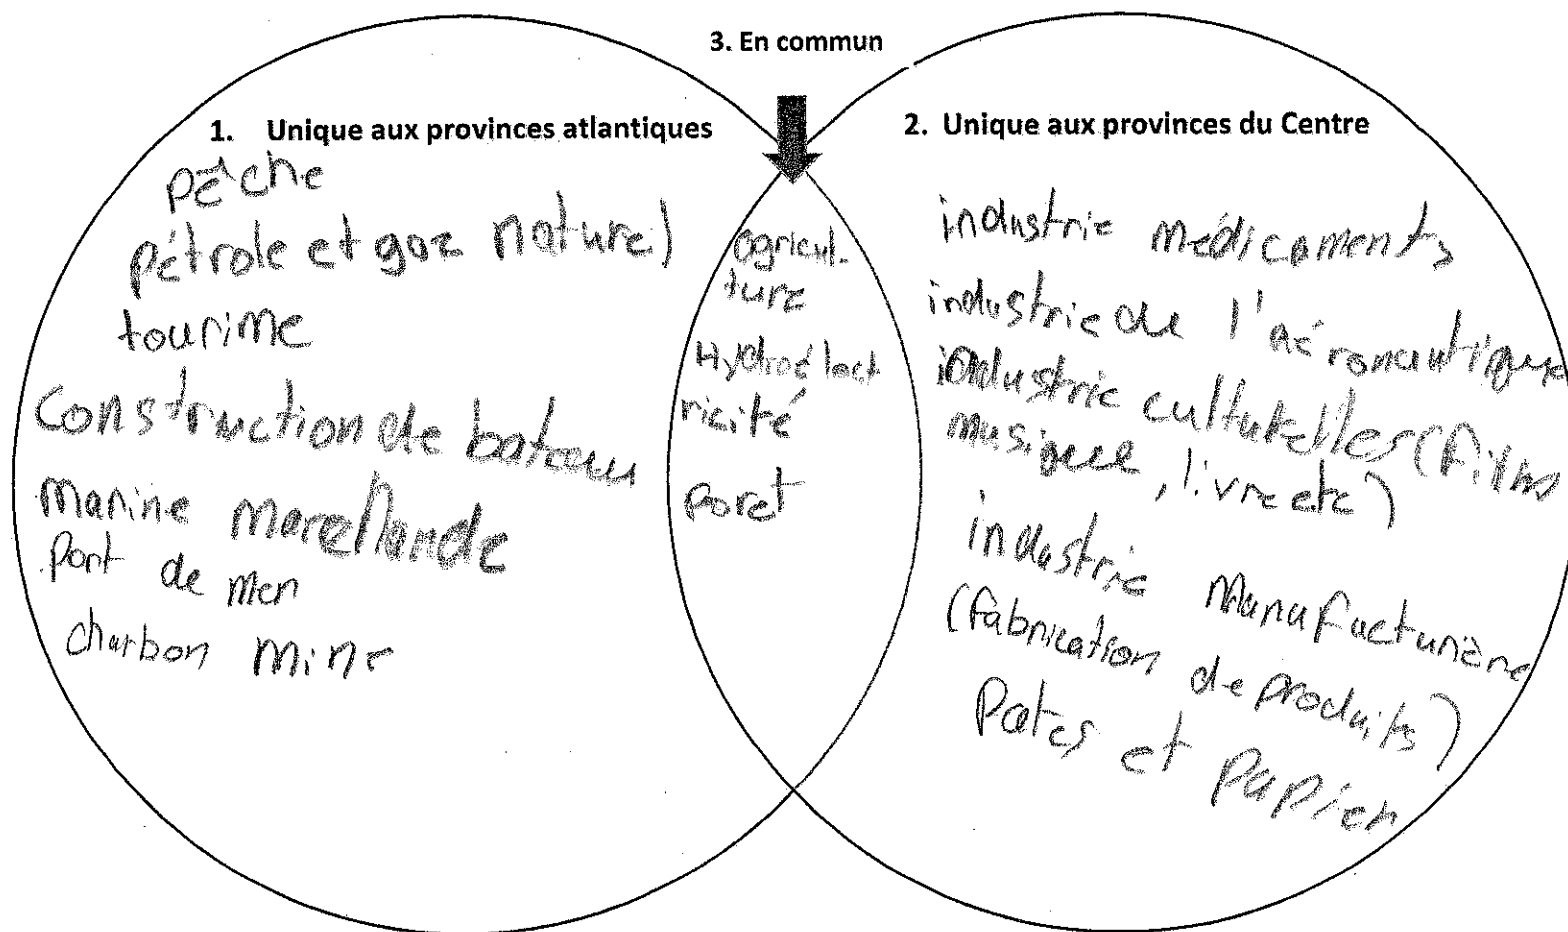 3. En commun
1. Unique aux provinces atlantiques
pêche
pétrole et gaz naturel
tourime
Construction de bateau
Marine marchande
Port de mer
charbon mine
agricul-
ture
Hydroélect
ricité
Foret
2. Unique aux provinces du Centre
industrie médicaments
industrie de l'aéronautique
industrie culturelles (films
musique, livre etc)
industrie Manufacturière
(fabrication de produits)
Pates et papier